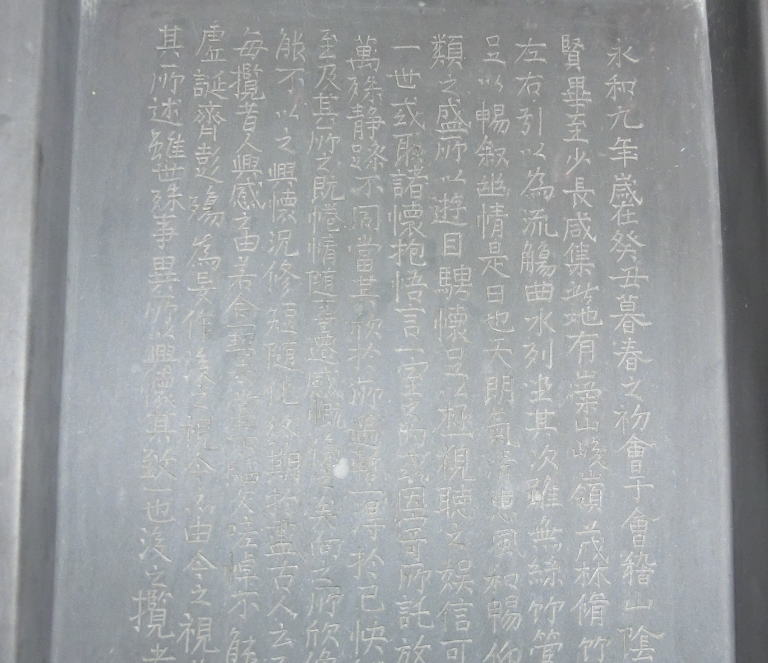 永和九年歲在癸丑暮春之初會于會稽山陰
賢畢至少長咸集此地有崇山峻嶺茂林脩竹
左右引以為流觴曲水列坐其次雖無絲竹管
足以暢敘幽情是日也天朗氣清惠風和暢仰
類之盛所以遊目騁懷足以極視聽之娛信可
一世或取諸懷抱悟言一室之內或因寄所託放
萬殊静躁不同當其欣於所遇暫得於己快
至及其所之既惓情隨事遷感慨係之矣向之所欣
能不以之興懷況修短隨化終期於盡古人云
每攬昔人興感之由若合一契未嘗不臨文嗟悼不能
虛誕齊彭殤為妄作後之視今亦由今之視
其所述雖世殊事異所以興懷其致一也後之攬者